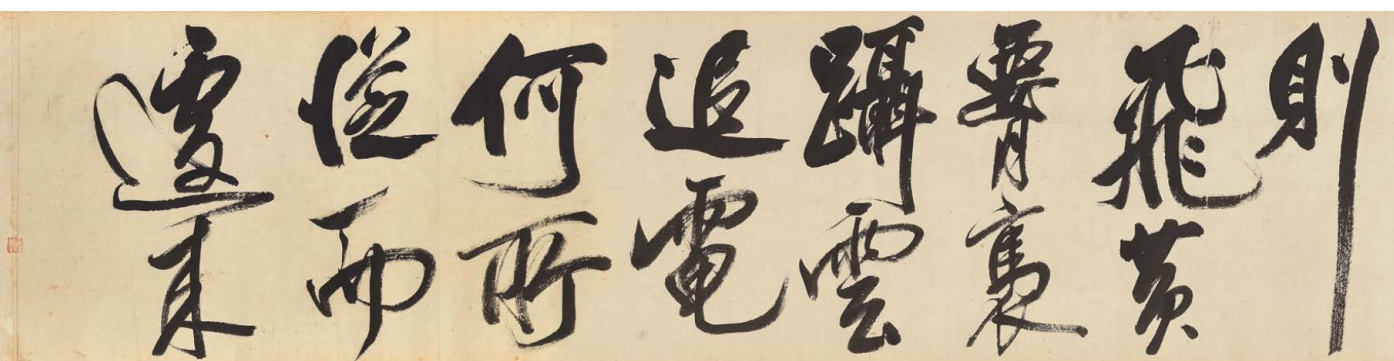 則
飛黃
腰褭
躡雲
追電
何所
從而
遽來